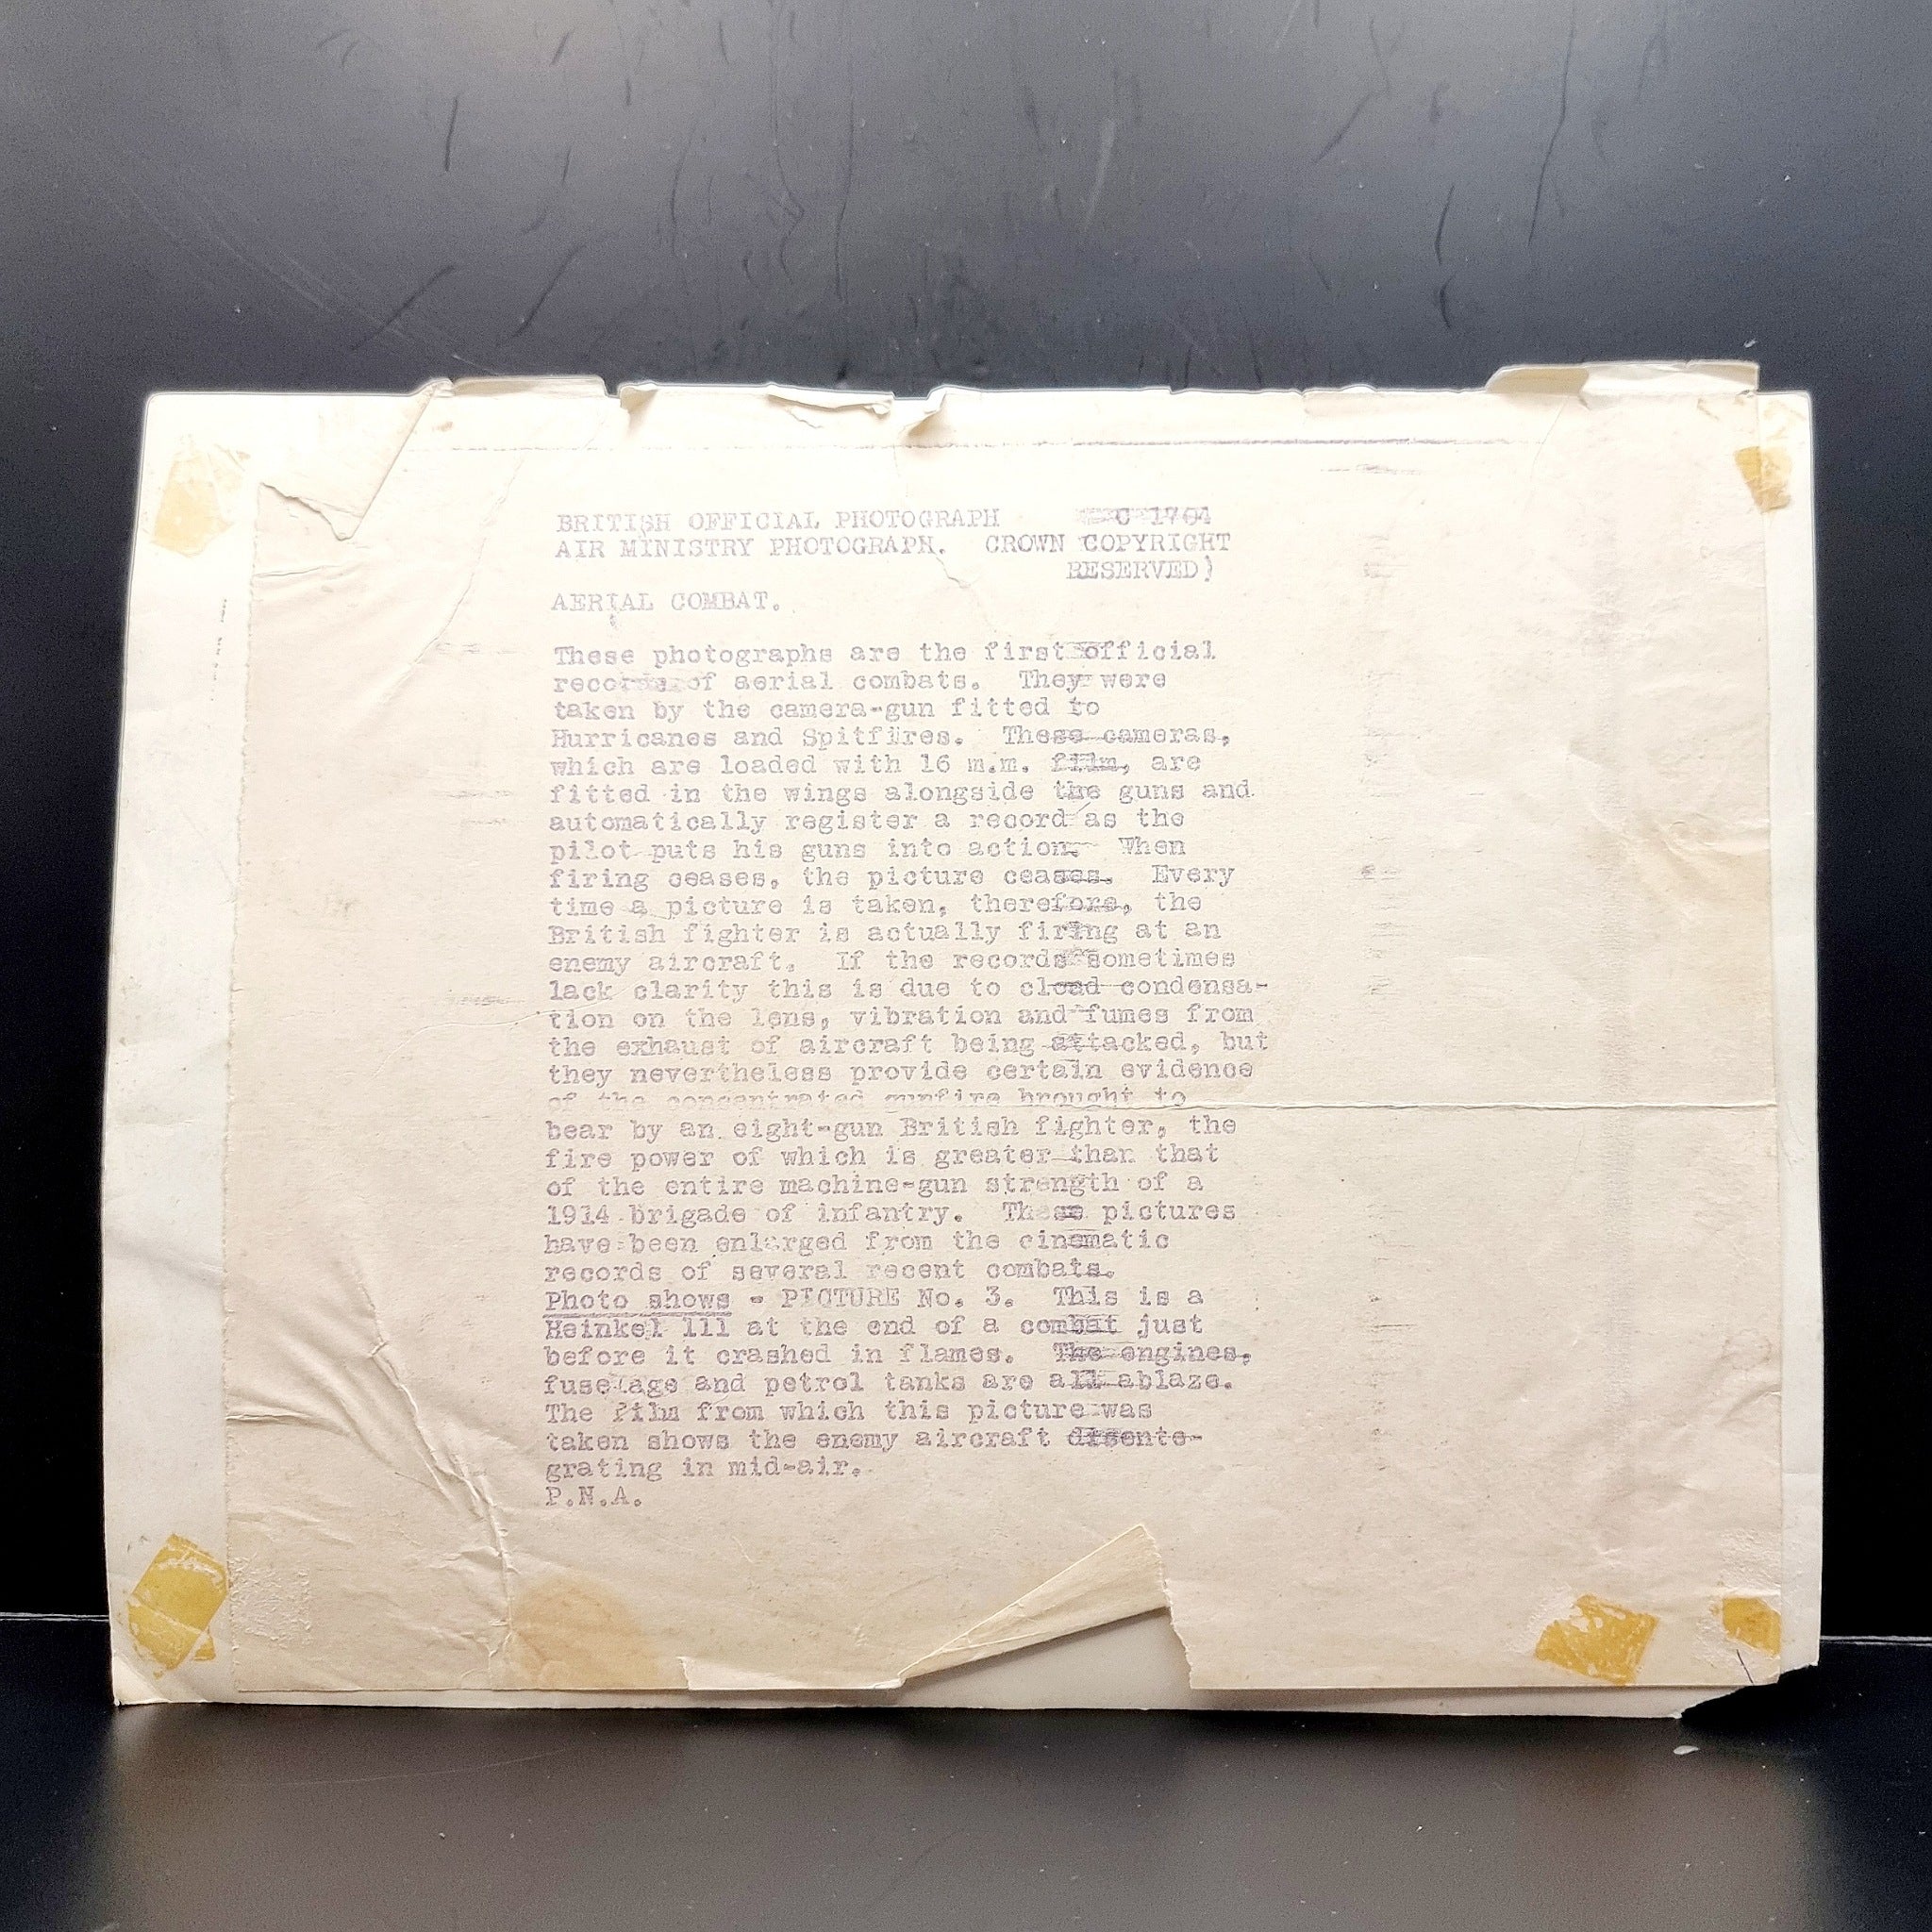 BRITISH OFFICIAL PHOTOGRAPH C 1764
AIR MINISTRY PHOTOGRAPH. CROWN COPYRIGHT
RESERVED)
AERIAL COMBAT.
These photographs are the first official
records of aerial combats. They were
taken by the camera-gun fitted to
Hurricanes and Spitfires. These cameras,
which are loaded with 16 m.m. film, are
fitted in the wings alongside the guns and
automatically register a record as the
pilot puts his guns into action. When
firing ceases, the picture ceases. Every
time a picture is taken, therefore, the
British fighter is actually firing at an
enemy aircraft. If the records sometimes
lack clarity this is due to cloud condensa-
tion on the lens, vibration and fumes from
the exhaust of aircraft being attacked, but
they nevertheless provide certain evidence
of the concentrated gunfire brought to
bear by an eight-gun British fighter, the
fire power of which is greater than that
of the entire machine-gun strength of a
1914 brigade of infantry. These pictures
have been enlarged from the cinematic
records of several recent combats.
Photo shows - PICTURE No. 3. This is a
Heinkel 111 at the end of a combat just
before it crashed in flames. The engines,
fuselage and petrol tanks are all ablaze.
The film from which this picture was
taken shows the enemy aircraft disente-
grating in mid-air.
P.N.A.